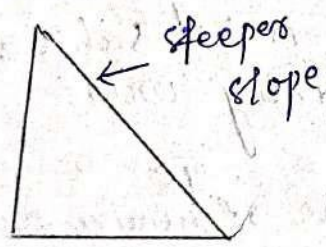 steeper
slope